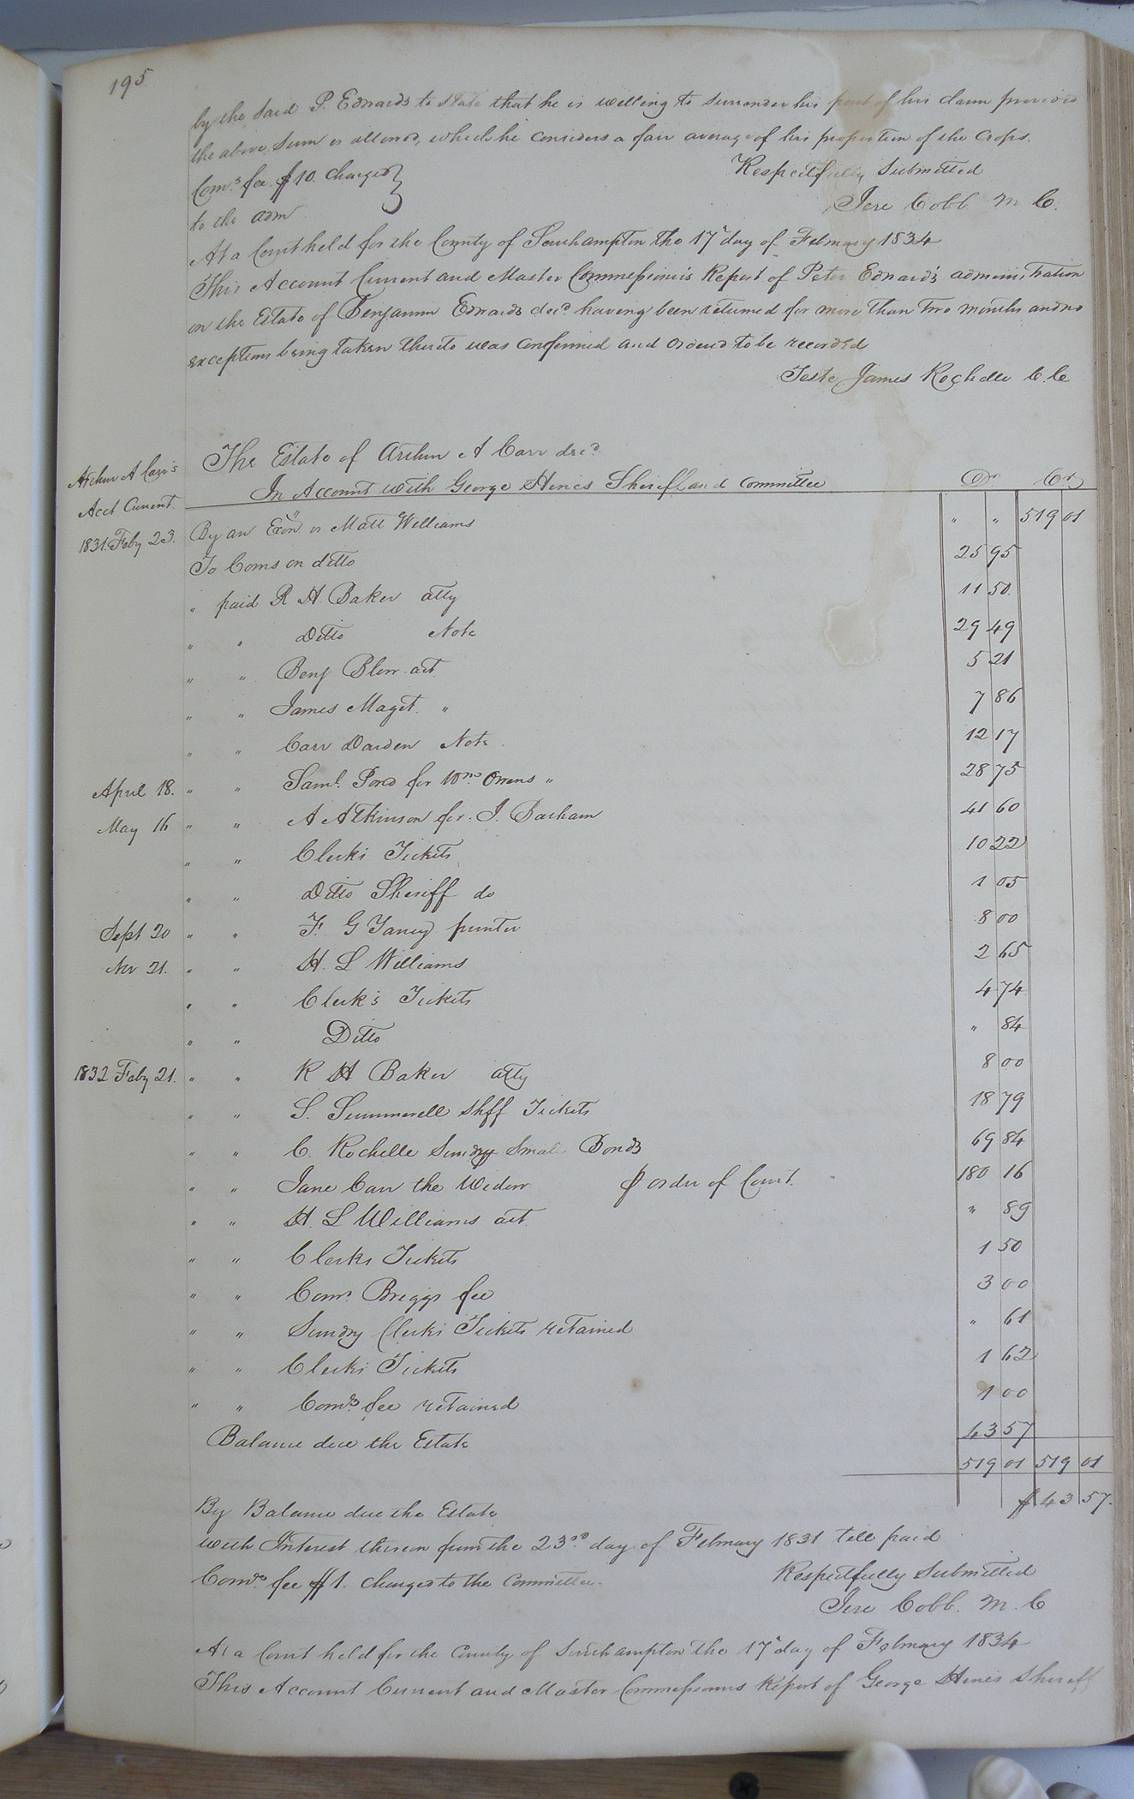 195
by the said P. Edwards to state that he is willing to surrender his part of his claim provided
the above sum is allowed, which he considers a fair average of his proportion of the Crops.
Com.s fee $10. charged } Respectfully Submitted
to the adm Jere Cobb M C.
At a Court held for the County of Southampton the 17 day of February 1834
This Account Current and Master Commissioners Report of Peter Edwards administration
on the Estate of Benjamin Edwards decd having been returned for more than two months and no
exceptions being taken thereto was confirmed and ordered to be recorded
Teste James Rochelle C.C
The Estate of Archer A Carr decd
Archer A Carr's
In Account with George Hines Sheriff and Committee Dr Cr
Acct Current.
1831 Feby 23. By an Exon vs Matt Williams " " 519 01
To Coms on ditto 25 95
" paid R H Baker atty 11 50.
" " Ditto Note 29 49
" " Benj Blow act 5 21
" " James Maget. " 7 86
" " Carr Darden Note. 12 17
April 18. " " Saml. Pond for Wm Owens " 28 75
May 16 " " A Atkinson for J. Barham 41 60
" " Clerks Tickets 10 22
" " Ditto Sheriff do 1 05
Sept 20 " " F. G Yancy printer 8 00
Nov 21. " " H. L Williams 2 65
" " Clerk's Tickets 4 74
" " Ditto " 84
1832 Feby 21. " " R H Baker atty 8 00
" " S. Summerell Shff Tickets 18 79
" " C. Rochelle Sundry Small Bonds 69 84
" " Jane Carr the Widow p order of Court. 180 16
" " H. L Williams act. " 89
" " Clerks Tickets 1 50
" " Comr. Briggs fee 3 00
" " Sundry Clerks Tickets retained " 61
" " Clerks Tickets 1 62
" " Comrs fee retained 1 00
Balance due the Estate 43 57
519 01 519 01
By Balance due the Estate $ 43 57.
with Interest thereon from the 23rd day of February 1831 till paid
Comrs fee $1. charged to the Committee. Respectfully Submitted
Jere Cobb. M. C
At a Court held for the County of Southampton the 17 day of February 1834
This Account Current and Master Commissioners Report of George Hines Sheriff